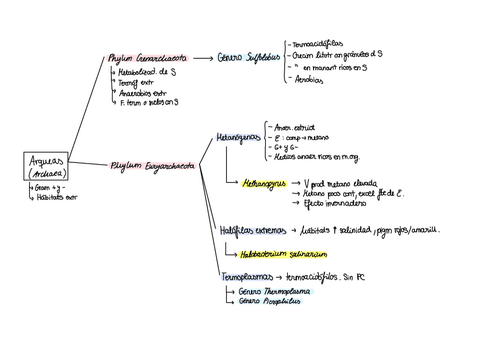 Arqueas
(Archaea)
↳ Gram + y -
↳ Hábitats extr
Phylum Crenarchaeota
↳ Metabolizad. de S
↳ Termóf extr
↳ Anaerobios extr
↳ F. term o suelos con S
Género Sulfolobus
- Termoacidófilas
- Crecim litótr con gránulos d S
- " en manant ricos en S
- Aerobias
Phylum Euryarchaeota
Metanógenas
- Anaer. estrict
- E : comp → metano
- G+ y G-
- Medios anaer ricos en m.org.
Methanopyrus
→ V prod metano elevada
→ Metano poco cont, excel fte de E.
→ Efecto invernadero
Halófilas extremas → Hábitats ↑ salinidad, pigm rojos/amarill.
↳ Halobacterium salinarium
Termoplasmas → termoacidófilos. Sin PC
↳ Género Thermoplasma
↳ Género Picrophilus